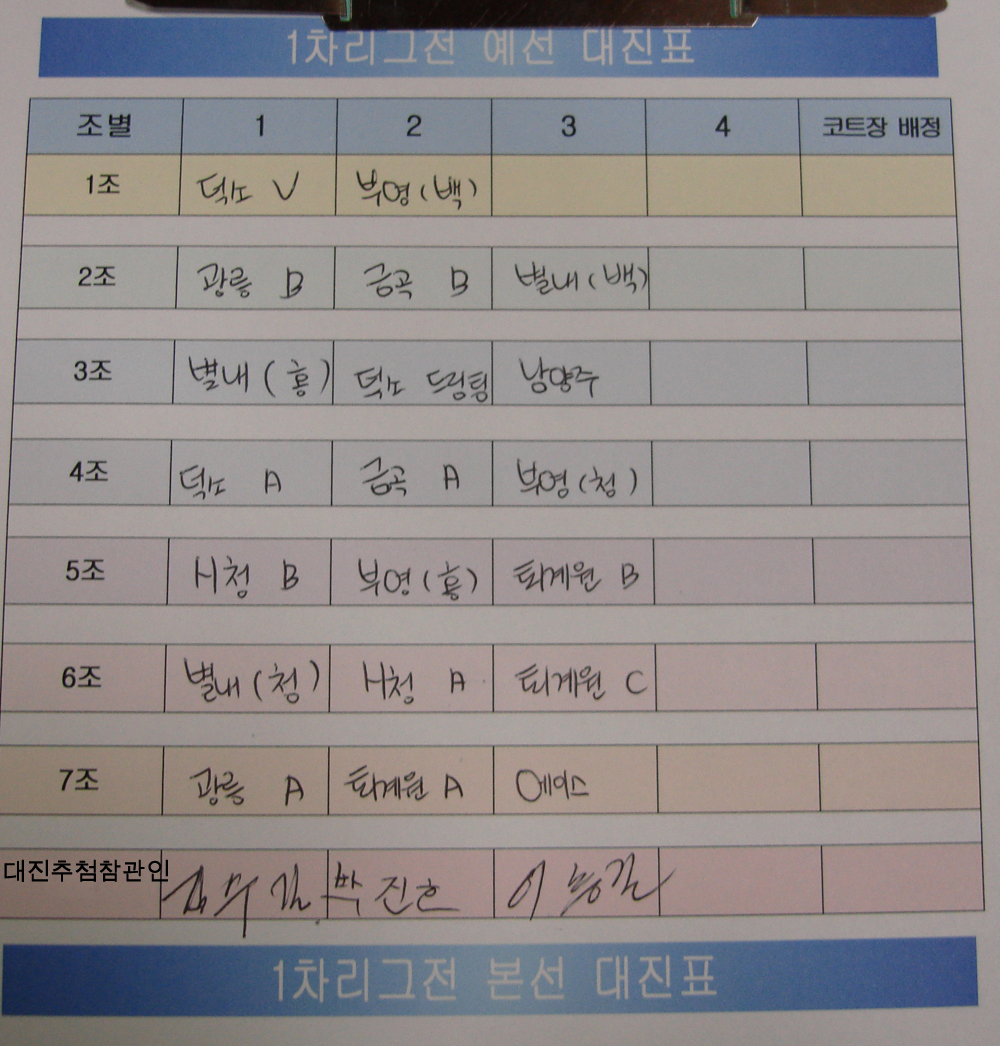 1차리그전 예선 대진표
조별 1 2 3 4 코트장 배정
1조 덕소 V 부영(백)
2조 광릉 B 금곡 B 별내(백)
3조 별내(홍) 덕소 드림팀 남양주
4조 덕소 A 금곡 A 부영(청)
5조 H청 B 부영(홍) 퇴계원 B
6조 별내(청) H청 A 퇴계원 C
7조 광릉 A 퇴계원 A 에이스
대진추첨참관인 박진호
1차리그전 본선 대진표